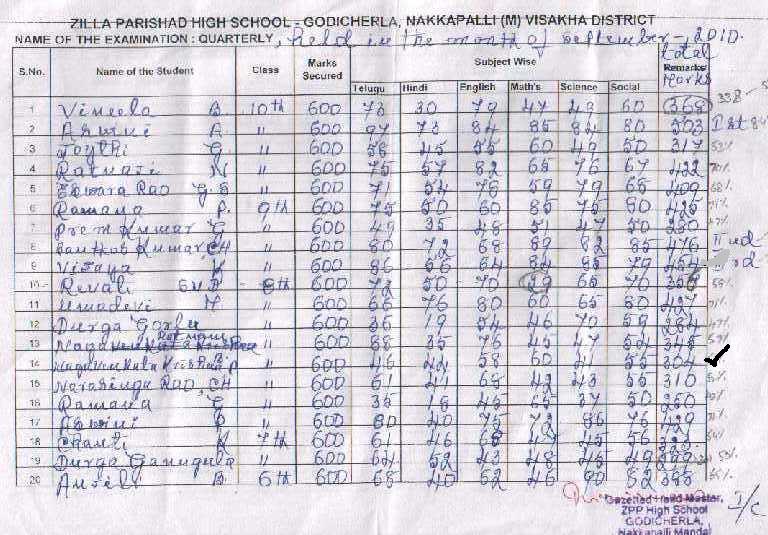 ZILLA PARISHAD HIGH SCHOOL - GODICHERLA, NAKKAPALLI (M) VISAKHA DISTRICT
NAME OF THE EXAMINATION : QUARTERLY, held in the month of september - 2010.
S.No. Name of the Student Class Marks Secured Subject Wise total Remarks Marks
Telugu Hindi English Math's Science Social
1 Vineela B. 10th 600 73 30 79 47 49 60 368 338
2 A. " 600 97 73 84 85 84 80 503 Ist
3 Joythi G. " 600 58 45 55 60 49 50 317
4 Ratnasi N " 600 75 57 82 65 76 67 422 70%
5 Eswara Rao G.S " 600 71 54 78 59 79 68 409 68%
6 Ramana P. 9th 600 75 50 60 85 75 80 425 71%
7 Prem Kumar G " 600 49 35 48 51 47 50 280
8 Santhosh Kumar, CH " 600 80 72 68 89 82 85 476 IInd
9 Vijaya K " 600 86 66 64 84 85 79 rd
10 Revali 8th 600 72 50 70 29 65 70 356 59%
11 Umadevi Y " 600 66 76 80 60 65 80 427 71%
12 Durga " 600 36 19 54 46 70 59 284 47%
13 " 600 88 35 76 45 47 54 345
14 " 600 46 42 58 60 41 55 304
15 Narasinga Rao, CH " 600 61 41 68 42 43 55 310
16 Ramana G " 600 35 18 45 65 37 50 250
17 Aswini P " 600 80 40 75 72 86 76 429
18 Chanti K 7th 600 61 46 68 45 56
19 Durga Ganugula " 600 64 52 43 48 45 49
20 B. 6th 600 68 40 62 46 80 52
Gazetted Head Master, I/C
ZPP High School
GODICHERLA,
Nakkapalli Mandal